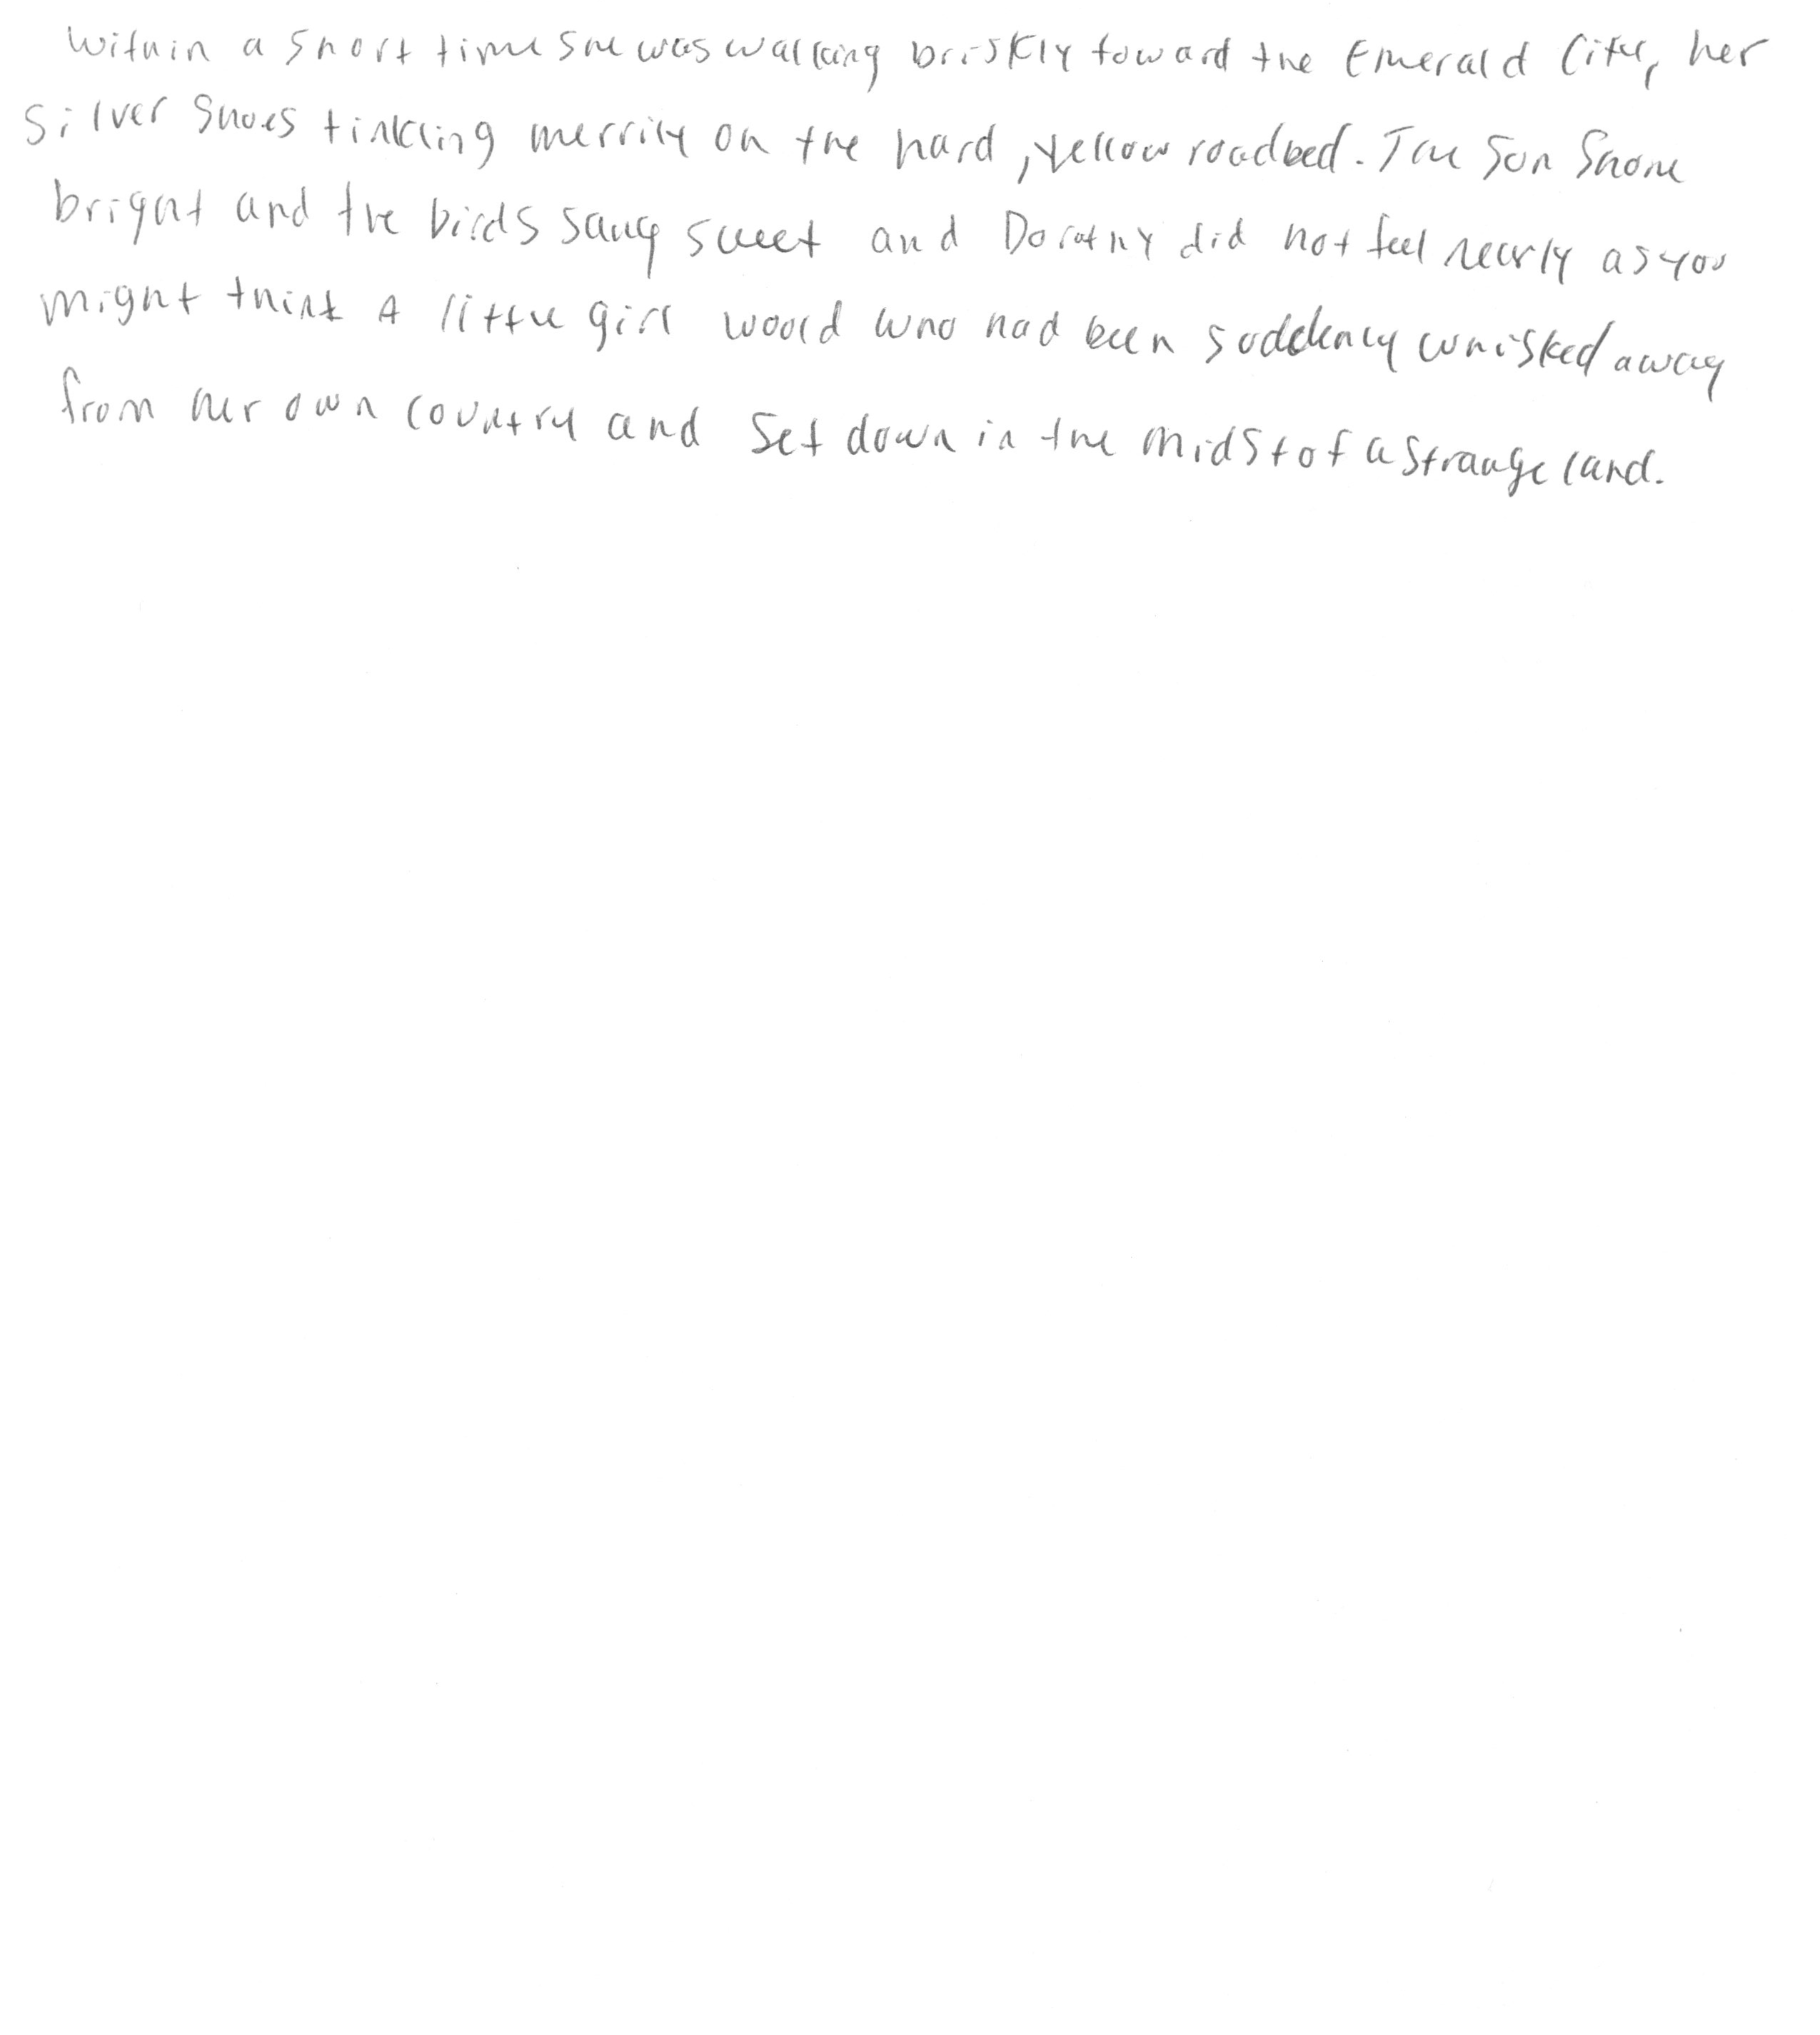 Within a short time she was walking briskly toward the Emerald City, her
silver shoes tinkling merrily on the hard, yellow roadbed. The sun shone
bright and the birds sang sweet and Dorothy did not feel nearly as you
might think a little girl would who had been suddenly whisked away
from her own country and set down in the midst of a strange land.